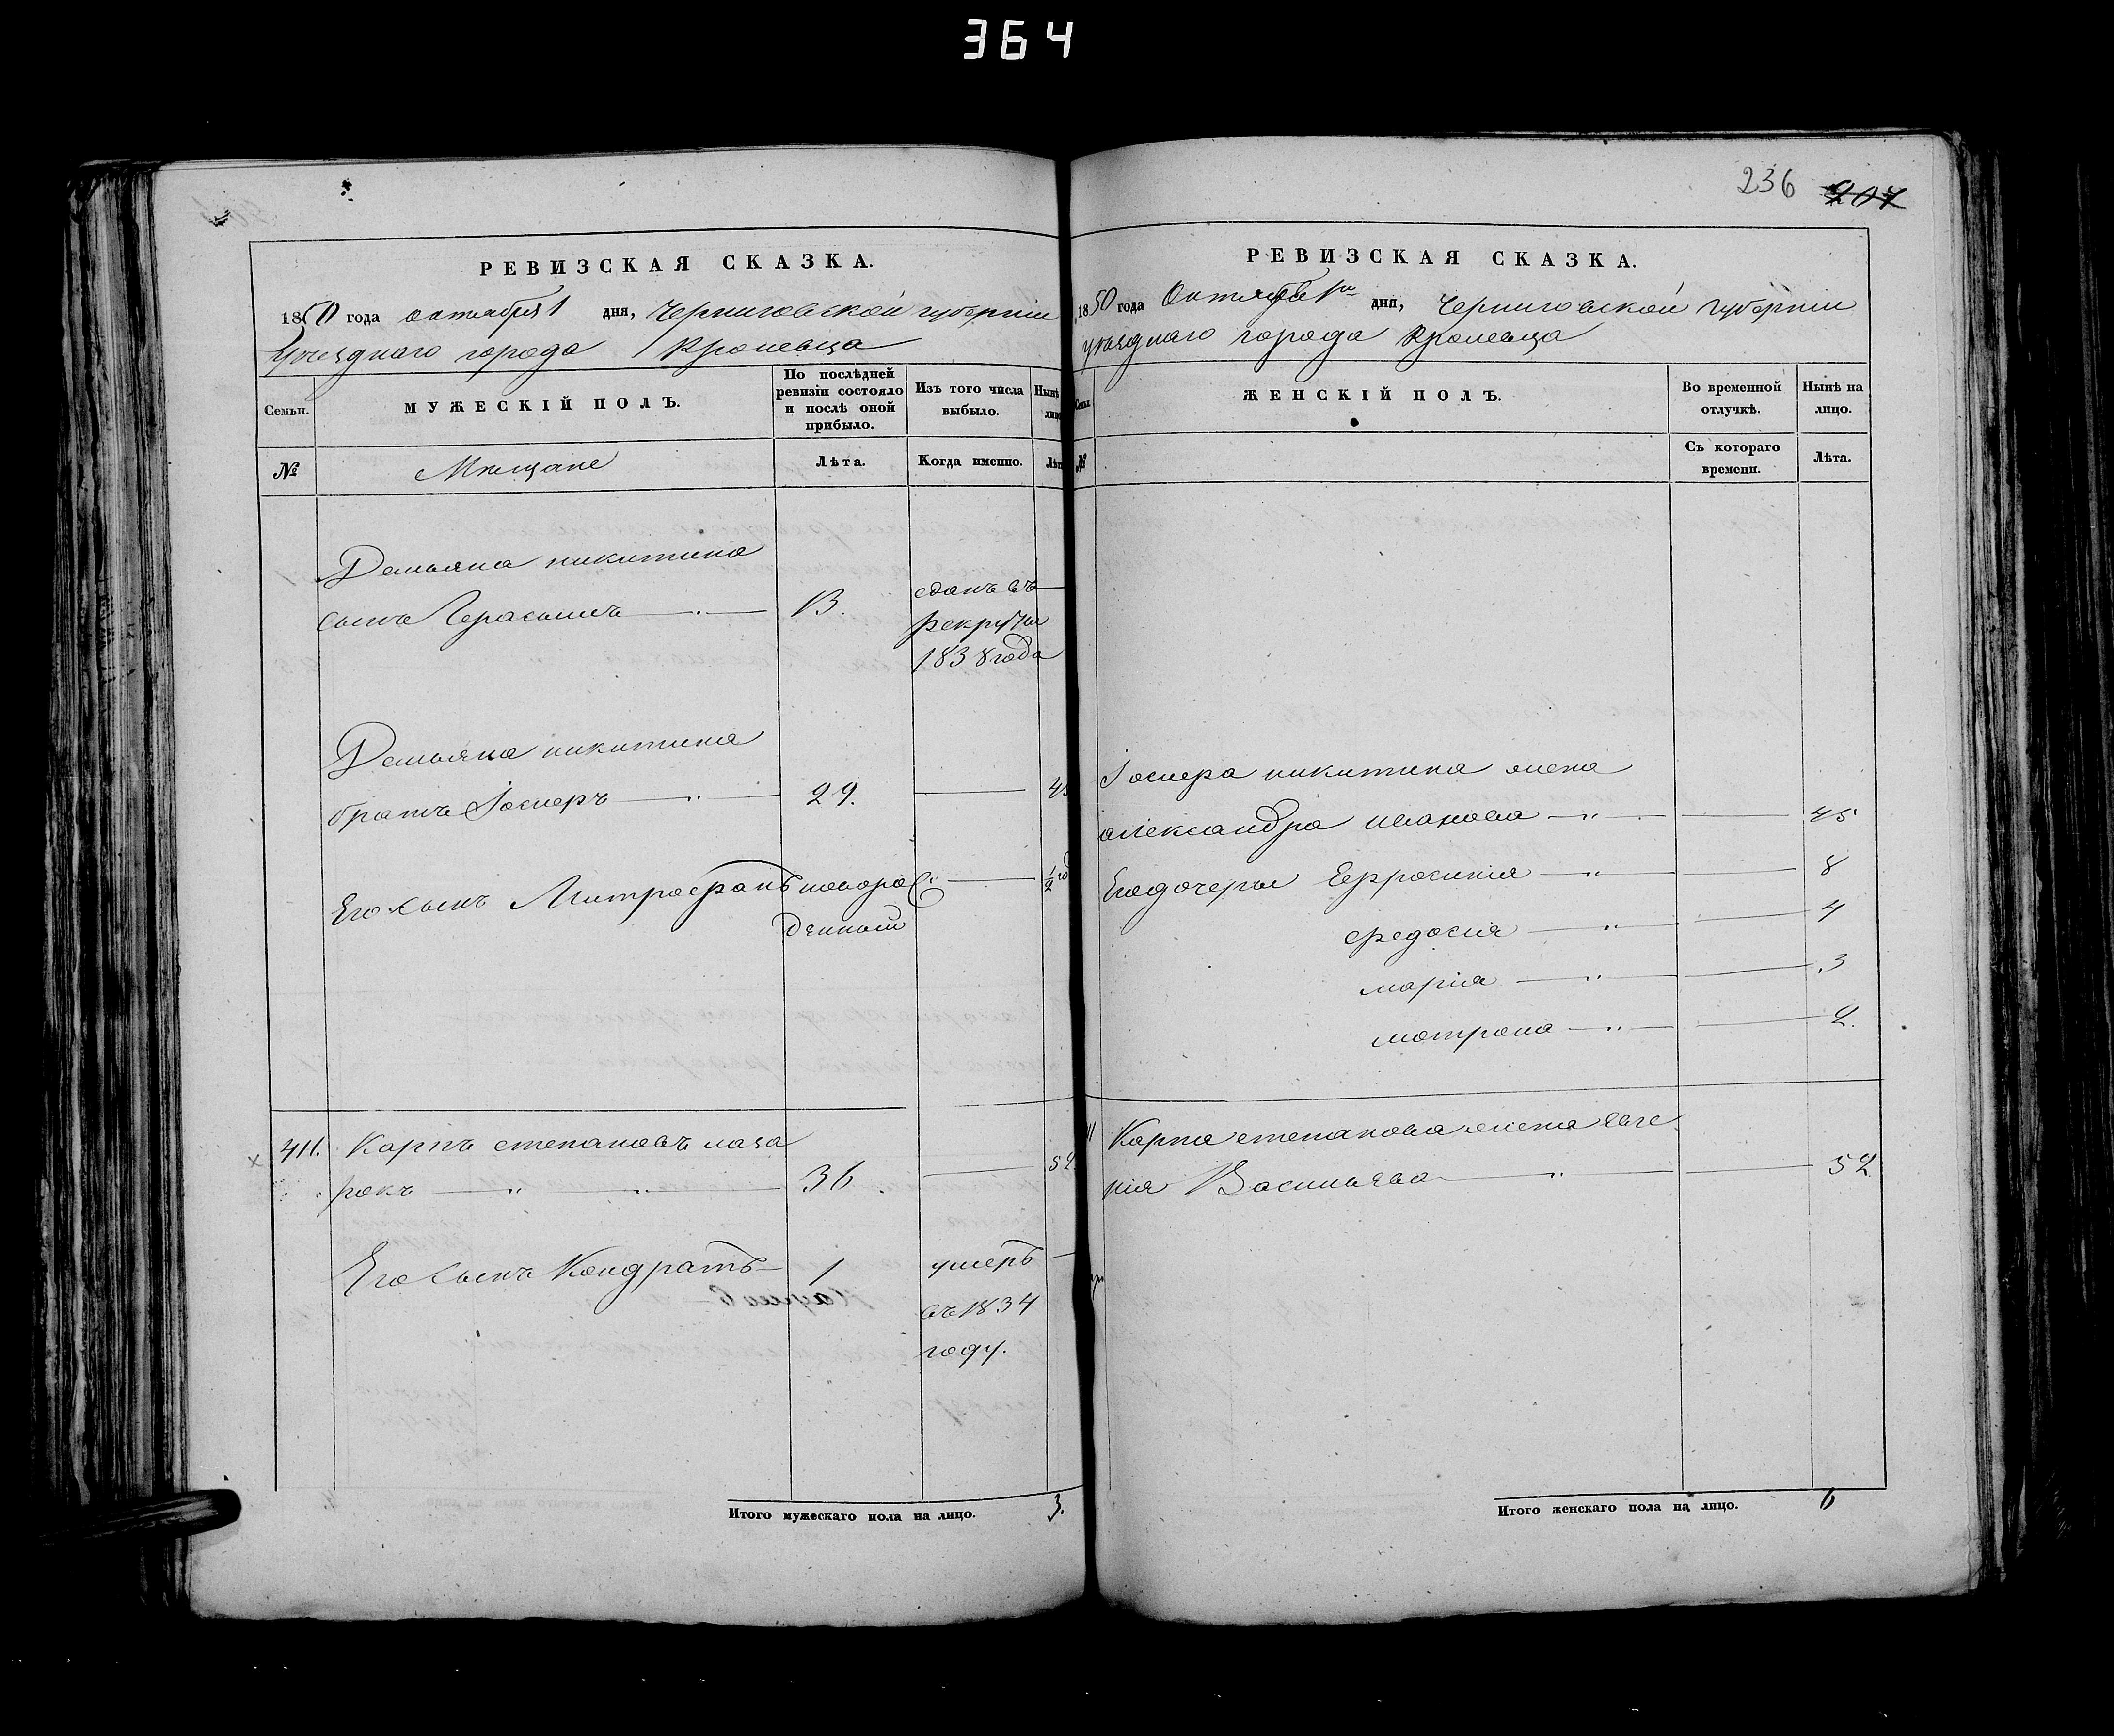 364
236 207
РЕВИЗСКАЯ СКАЗКА.
1850 года октября 1 дня, Черниговской губерніи
Уѣзднаго города Кролевца
Семьи.
МУЖЕСКІЙ ПОЛЪ.
По послѣдней ревизіи состояло и послѣ оной прибыло.
Изъ того числа выбыло.
Нынѣ
лицо
№
Мѣщане
Лѣта.
Когда именно.
Лѣт
Демьяна никитина
сынъ Герасимъ 13. сданъ въ
рекруты
1838 года
Демьяна никитина
братъ Іосиеръ 29. 45
Его сынъ Митрофанъ новорож
денный
½ год
411. Карпъ степановъ лаза
рокъ 36. 52
Его сынъ Кондратъ 1 умеръ
въ 1834
году.
Итого мужескаго пола на лицо. 3.
РЕВИЗСКАЯ СКАЗКА.
1850 года Октября 1го дня, Черниговской губерніи
уѣзднаго города Кролевца
Семьи.
ЖЕНСКІЙ ПОЛЪ.
Во временной отлучкѣ.
Нынѣ на лицо.
№
Съ котораго времени.
Лѣта.
Іосиера никитина жена
александра иванова 45
Его дочеры Ефросинія 8
федосия 4
марія 3
матрона 2.
11 Карпа степанова жена Евге
нія Васильева 52
Итого женскаго пола на лицо. 6